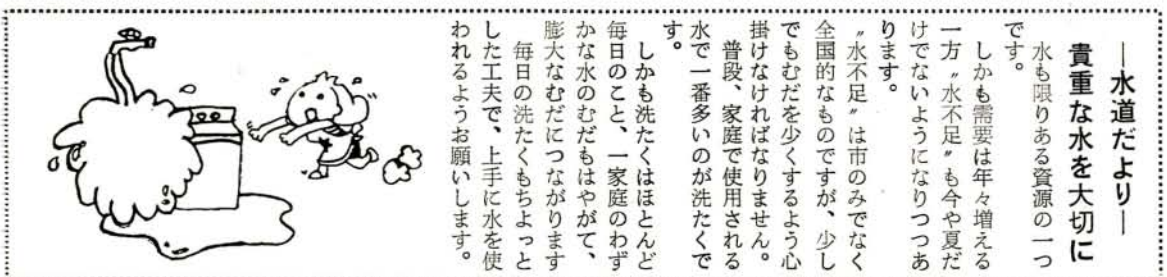 ―水道だより―
貴重な水を大切に
水も限りある資源の一つ
です。
しかも需要は年々増える
一方〝水不足〟も今や夏だ
けでないようになりつつあ
ります。
〝水不足〟は市のみでなく
全国的なものですが、少し
でもむだを少くするよう心
掛けなければなりません。
普段、家庭で使用される
水で一番多いのが洗たくで
す。
しかも洗たくはほとんど
毎日のこと、一家庭のわず
かな水のむだもはやがて、
膨大なむだにつながります
毎日の洗たくもちよっと
した工夫で、上手に水を使
われるようお願いします。